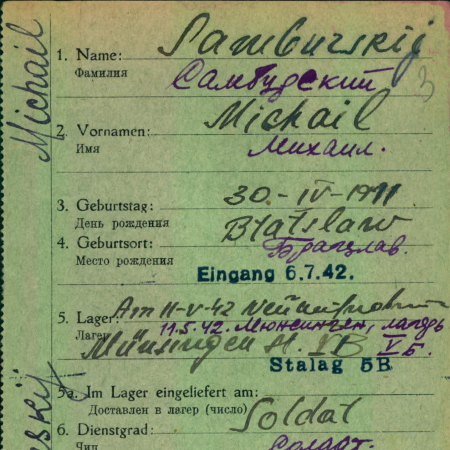 1. Name: Samburskij
Фамилия Самбурский
2. Vornamen: Michail
Имя Михаил.
3. Geburtstag: 30.-IV-1911
День рождения
4. Geburtsort: Bratslaw
Место рождения Брацлав.
Eingang 6.7.42.
5. Lager: Am 11-V-42
Лагерь 11.5.42. Мюнсинген, лагерь
Münsingen St. VB VБ.
Stalag 5B
5a. Im Lager eingeliefert am:
Доставлен в лагерь (число)
6. Dienstgrad: Soldat
Чин Солдат.
Michail